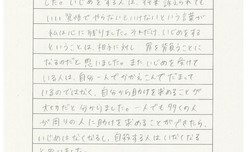 した。いじめをする人は、将来訴えられても
いい覚悟でやらないといけないという言葉が
私は心に残りました。それだけいじめをする
ということは、相手に対し、罪を背負うことに
なるのだと思いました。またいじめを受けて
いる人は、自分一人でかかえこんでだまって
いるのではなく、自分から助けを求めることが
大切だと分かりました。一人でも多くの人
が周りの人に助けを求めることができたら、
いじめはなくなるし、自殺する人はいなくなる
と思いました。